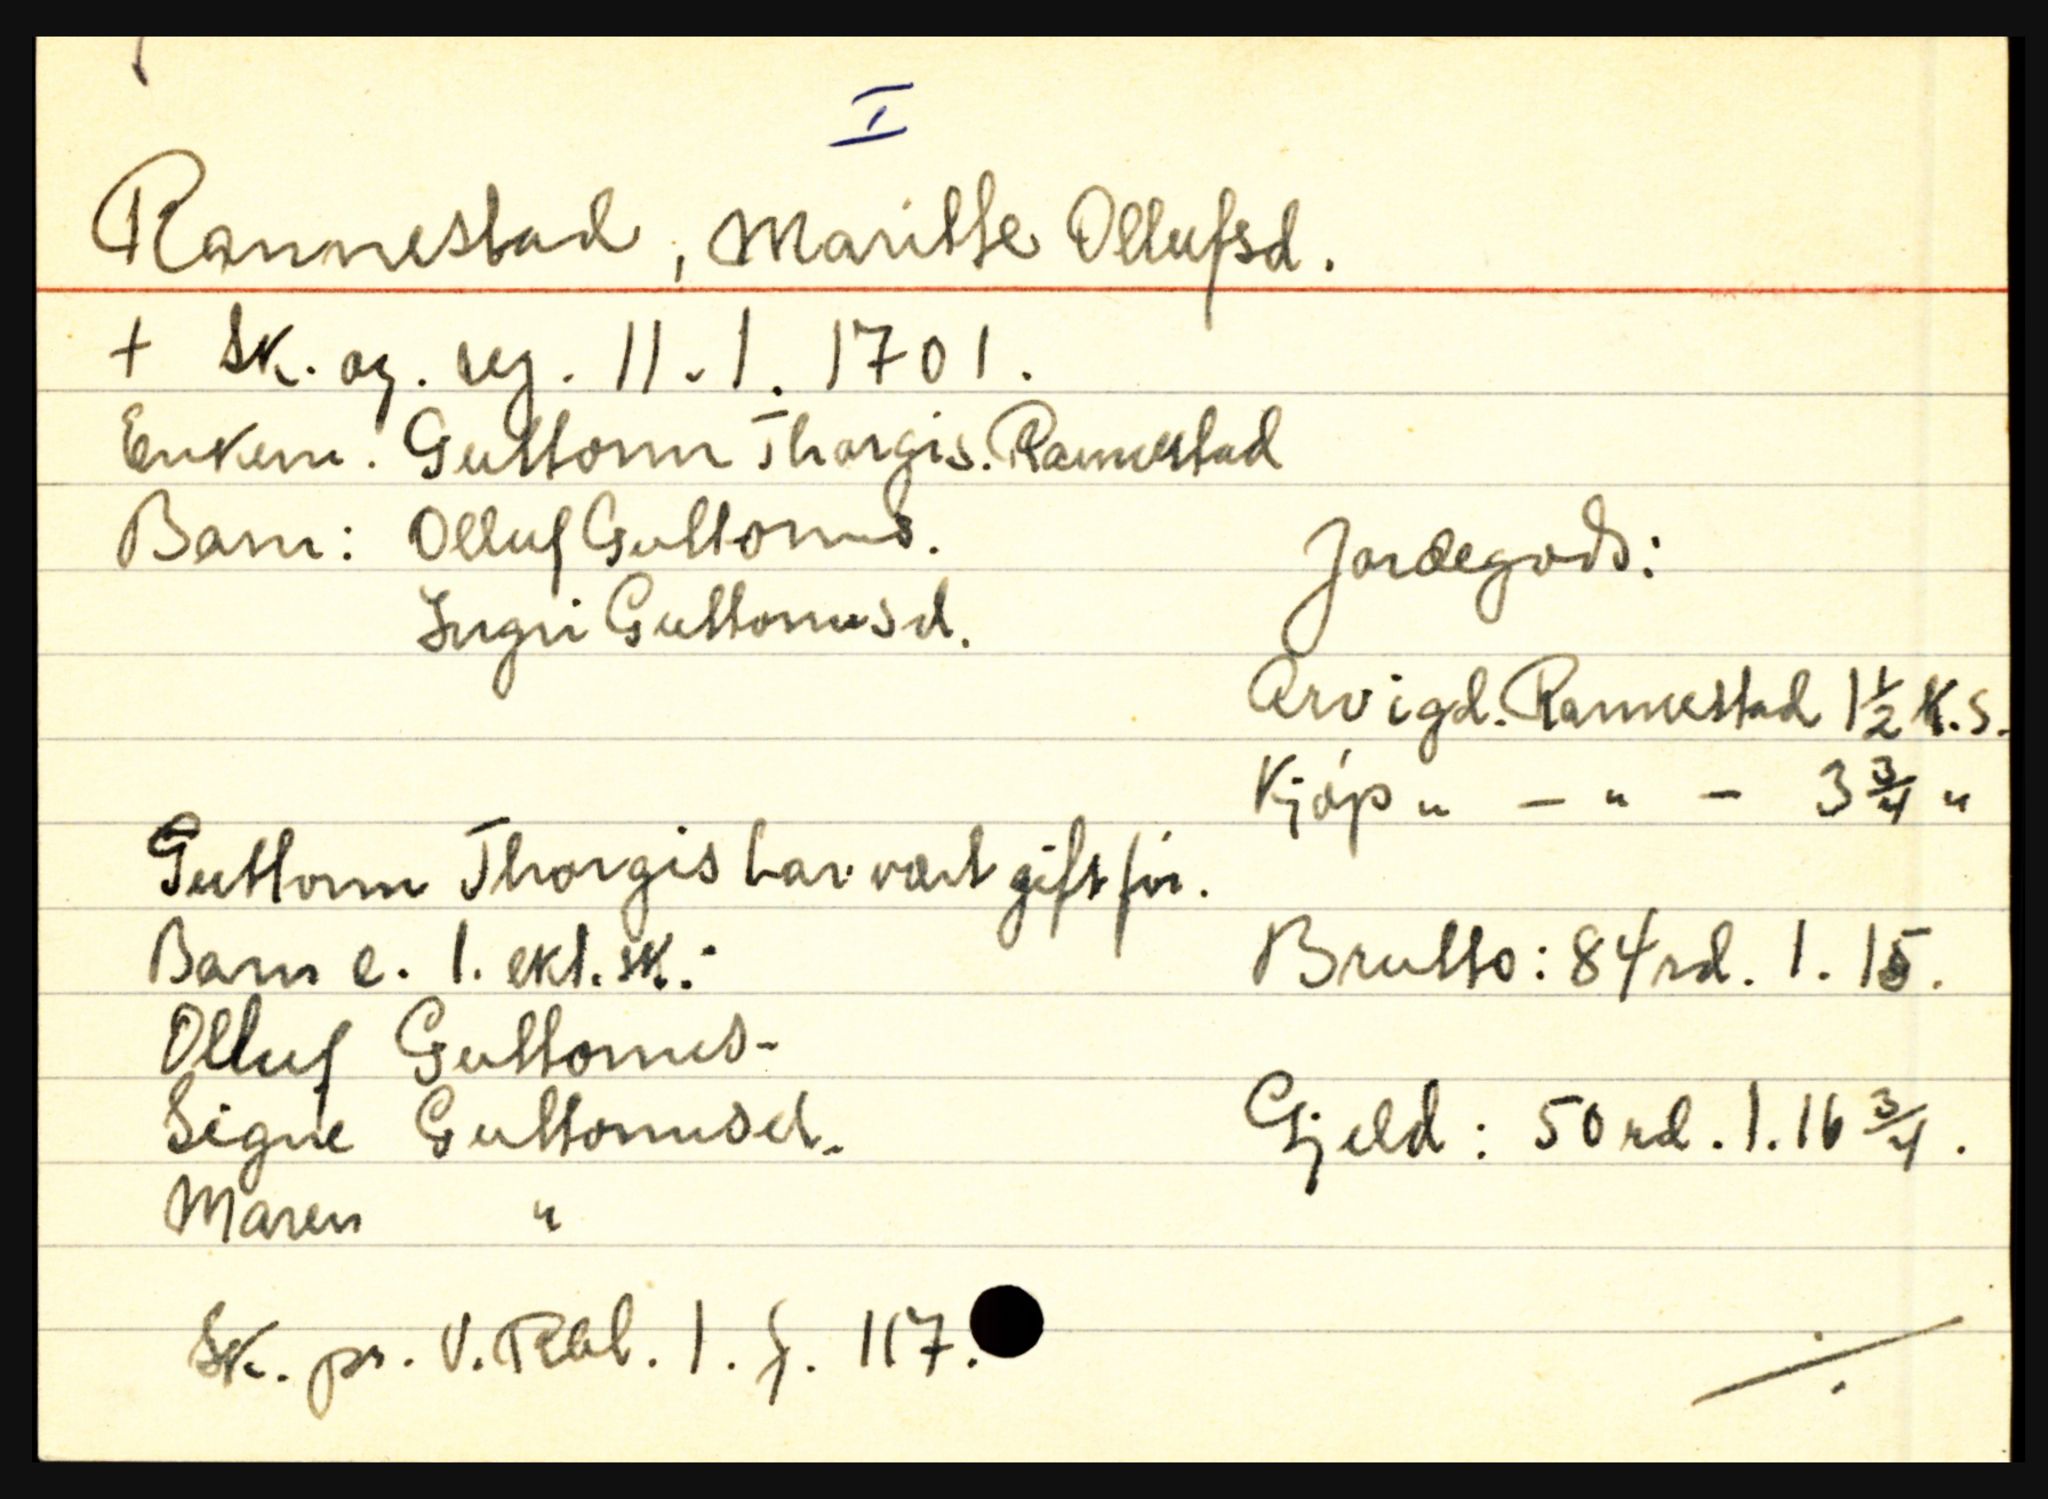 I
Rannestad, Maritte Ollufsd.
+ Sk. og. reg. 11.1.1701.
Enkem. Guttorm Thorgis. Rannestad
Barn: Olluf Guttorms.
Ingri Guttormsd.
Jordegods:
Arvigd. Rannestad 1 1/2 k.s.
Kjøp " — " — 3 3/4 "
Guttorm Thorgis har vært gift før.
Barn e. 1. ekt.sk.:
Olluf Guttorms.
Signe Guttormsd.
Maren "
Brutto: 84 rd. 1. 15.
Gjeld: 50 rd. 1. 16 3/4.
Sk. pr. V. Rbl. 1. f. 117.